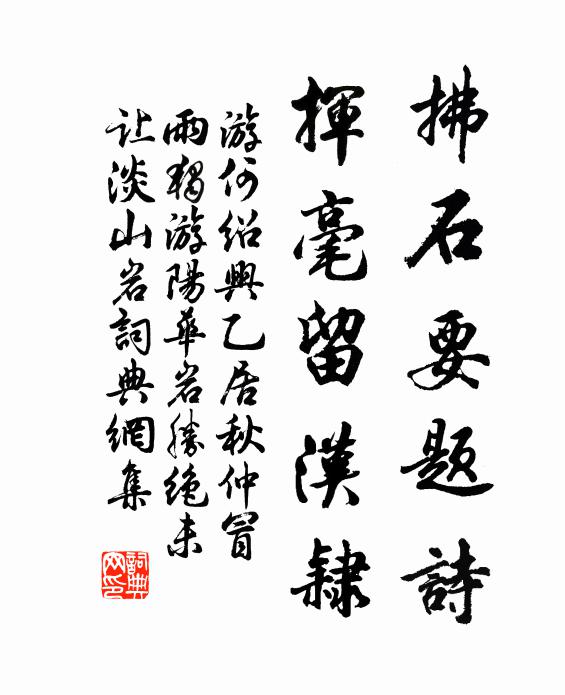 拂石要题詩
揮毫留漢隸
游何绍興乙居秋仲冒
雨獨游陽華岩勝絶未
让淡山岩詞典網集
詞典网印